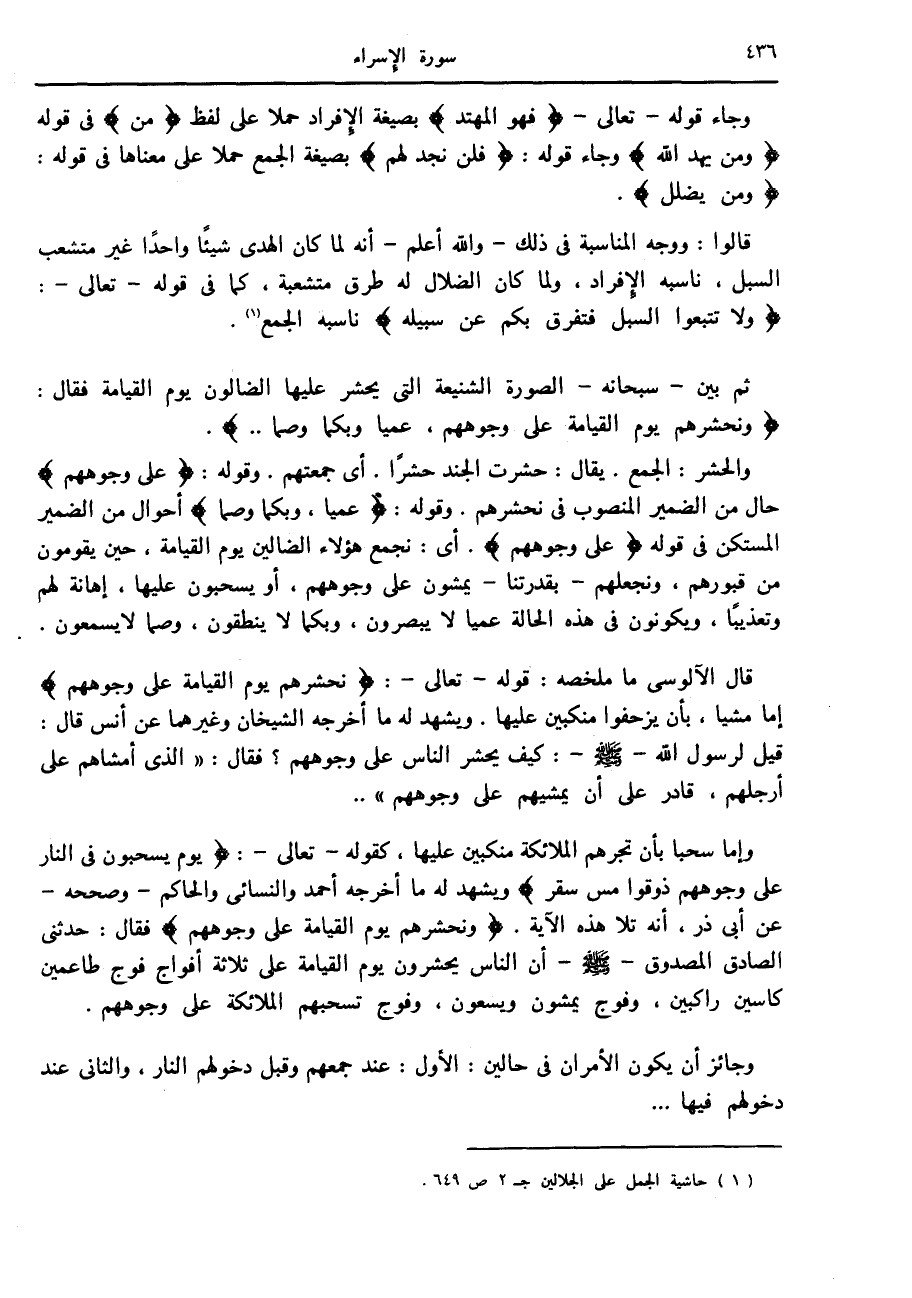 ٤٣٦
سورة الإسراء
وجاء قوله - تعالى - ﴿ فهو المهتد ﴾ بصيغة الإفراد حملا على لفظ ﴿ من ﴾ فى قوله
﴿ ومن يهد الله ﴾ وجاء قوله : ﴿ فلن نجد لهم ﴾ بصيغة الجمع حملا على معناها فى قوله :
﴿ ومن يضلل ﴾ .
قالوا : ووجه المناسبة فى ذلك - والله أعلم - أنه لما كان الهدى شيئًا واحدًا غير متشعب
السبل ، ناسبه الإفراد ، ولما كان الضلال له طرق متشعبة ، كما فى قوله - تعالى - :
﴿ ولا تتبعوا السبل فتفرق بكم عن سبيله ﴾ ناسبه الجمع(١) .
ثم بين - سبحانه - الصورة الشنيعة التى يحشر عليها الضالون يوم القيامة فقال :
﴿ ونحشرهم يوم القيامة على وجوههم ، عميا وبكما وصما .. ﴾ .
والحشر : الجمع . يقال : حشرت الجند حشرًا . أى جمعتهم . وقوله : ﴿ على وجوههم ﴾
حال من الضمير المنصوب فى نحشرهم . وقوله : ﴿ عميا ، وبكما وصما ﴾ أحوال من الضمير
المستكن فى قوله ﴿ على وجوههم ﴾ . أى : نجمع هؤلاء الضالين يوم القيامة ، حين يقومون
من قبورهم ، ونجعلهم - بقدرتنا - يمشون على وجوههم ، أو يسحبون عليها ، إهانة لهم
وتعذيبًا ، ويكونون فى هذه الحالة عميا لا يبصرون ، وبكما لا ينطقون ، وصما لايسمعون .
قال الآلوسى ما ملخصه : قوله - تعالى - : ﴿ نحشرهم يوم القيامة على وجوههم ﴾
إما مشيا ، بأن يزحفوا منكبين عليها . ويشهد له ما أخرجه الشيخان وغيرهما عن أنس قال :
قيل لرسول الله - ﷺ - : كيف يحشر الناس على وجوههم ؟ فقال : « الذى أمشاهم على
أرجلهم ، قادر على أن يمشيهم على وجوههم » ..
وإما سحبا بأن تجرهم الملائكة منكبين عليها ، كقوله - تعالى - : ﴿ يوم يسحبون فى النار
على وجوههم ذوقوا مس سقر ﴾ ويشهد له ما أخرجه أحمد والنسائى والحاكم - وصححه -
عن أبى ذر ، أنه تلا هذه الآية . ﴿ ونحشرهم يوم القيامة على وجوههم ﴾ فقال : حدثنى
الصادق المصدوق - ﷺ - أن الناس يحشرون يوم القيامة على ثلاثة أفواج فوج طاعمين
كاسين راكبين ، وفوج يمشون ويسعون ، وفوج تسحبهم الملائكة على وجوههم .
وجائز أن يكون الأمران فى حالين : الأول : عند جمعهم وقبل دخولهم النار ، والثانى عند
دخولهم فيها ...
( ١ ) حاشية الجمل على الجلالين جـ ٢ ص ٦٤٩ .